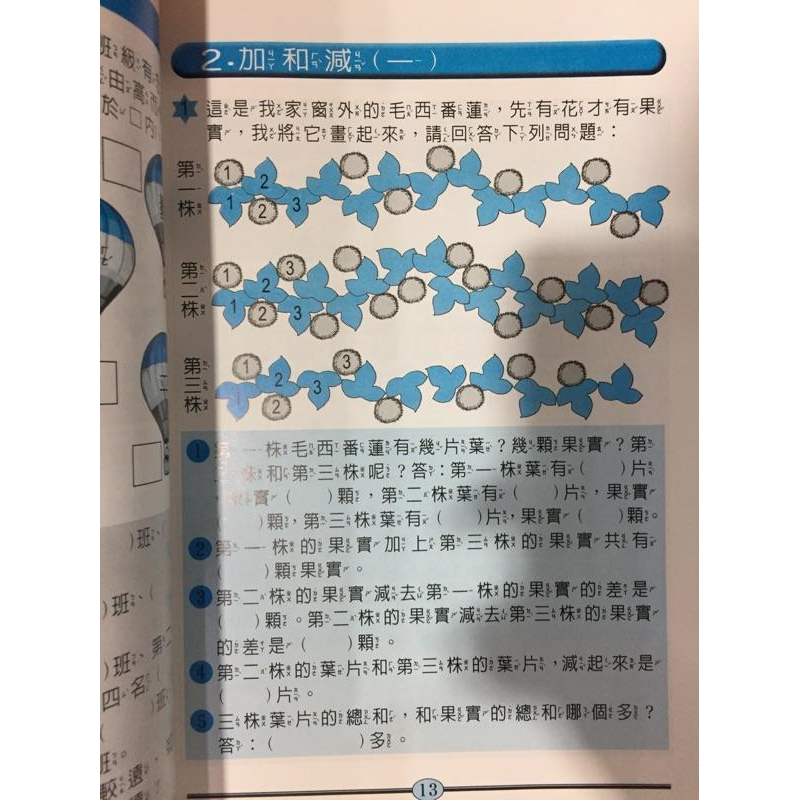 2.加和減(一)
1 這是我家窗外的毛西番蓮，先有花才有果
實，我將它畫起來，請回答下列問題：
第一株
1 2 1 2 3
第二株
1 2 3 1 2 3
第三株
1 2 3 1 2 3
1 第一株毛西番蓮有幾片葉？幾顆果實？第
株和第三株呢？答：第一株葉有( )片
，果實( )顆，第二株葉有( )片，果實
( )顆，第三株葉有( )片，果實( )顆。
2 第一株的果實加上第三株的果實共有
( )顆果實。
3 第二株的果實減去第一株的果實的差是
( )顆。第二株的果實減去第三株的果實
的差是( )顆。
4 第二株的葉片和第三株的葉片，減起來是
( )片。
5 三株葉片的總和，和果實的總和哪個多？
答：( )多。
13
班級有
由高而
於□內
)班、
)班、(
)班、第二
四名(
班。
較遠